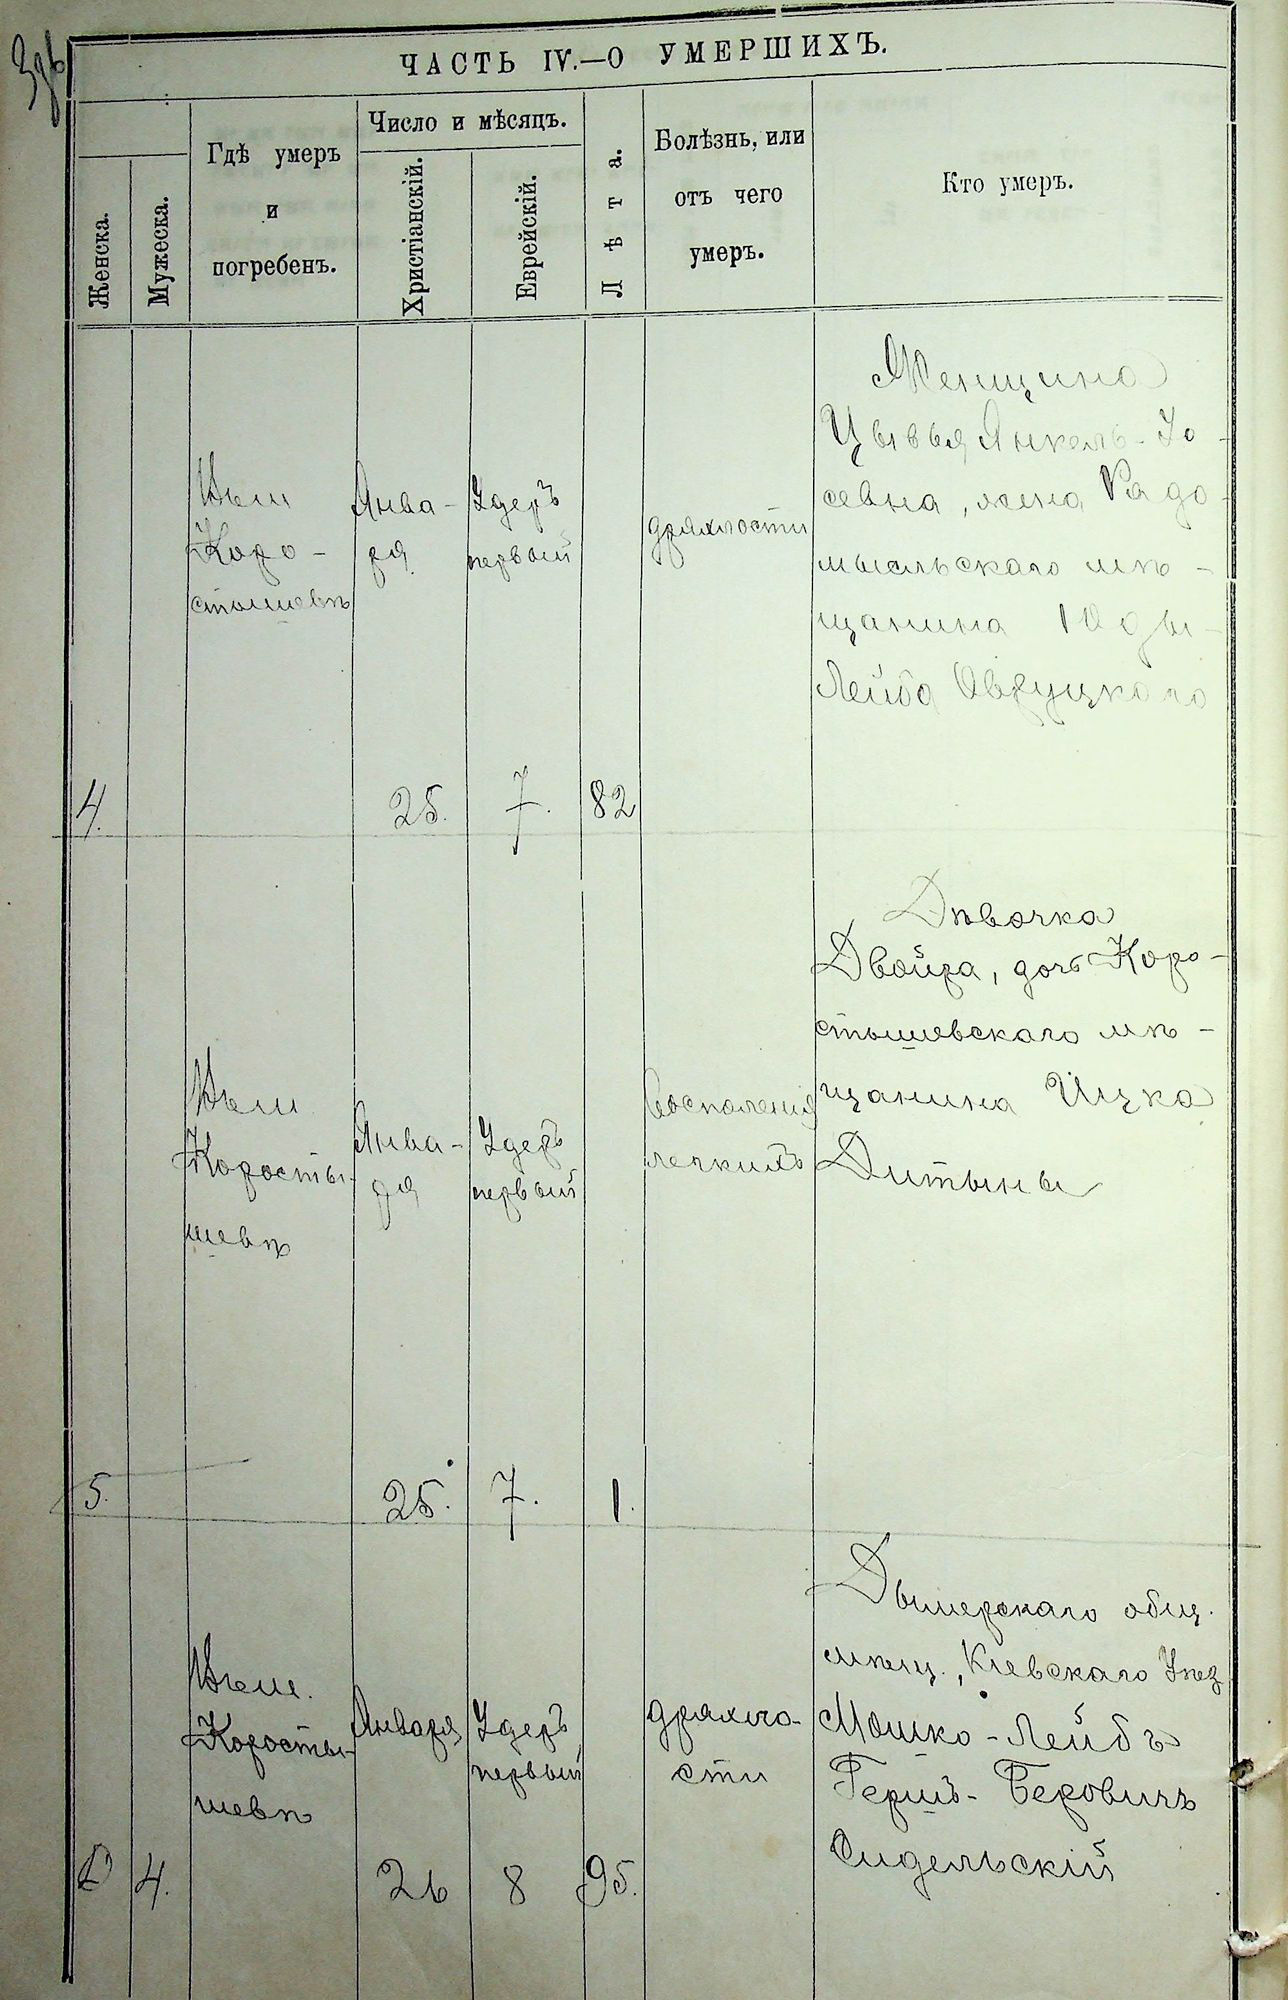 ЧАСТЬ IV.—О УМЕРШИХЪ.
Женска.
Мужеска.
Гдѣ умеръ
и
погребенъ.
Число и мѣсяцъ.
Христіанскій.
Еврейскій.
Лѣта.
Болѣзнь, или
отъ чего
умеръ.
Кто умеръ.
4.
Въ м.
Коро-
стышевѣ
Янва-
ря
25.
Удеръ
первый
7.
82
дряхлости
Женщина
Цывья Янкель-Іо-
севна, жена Радо-
мысльскаго мѣ-
щанина Юды-
Лейба Овруцкаго
5.
Въ м.
Коросты-
шевѣ
Янва-
ря
25.
Удеръ
первый
7.
1.
Воспаленія
легкихъ
Дѣвочка
Двойра, дочь Коро-
стышевскаго мѣ-
щанина Ицка
Дитыны
4.
Въ м.
Коросты-
шевѣ
Января
26
Удеръ
первый
8
95.
дряхло-
сти
Дымерскаго общ.
мѣщ., Кіевскаго Уѣзд
Мошко-Лейбъ
Гершъ-Беровичъ
Сидельскій